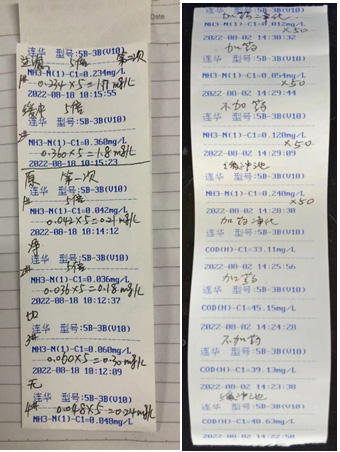 连华 型号:5B-3B(V10)
5倍 第二次
NH3-N(1)-C1=0.234mg/L
0.234×5=1.17mg/L
2022-08-18 10:15:55
缓冲 5倍
连华 型号:5B-3B(V10)
NH3-N(1)-C1=0.360mg/L
0.360×5=1.8mg/L
2022-08-18 10:15:23
原 第一次
连华 型号:5B-3B(V10)
5倍
NH3-N(1)-C1=0.042mg/L
0.042×5=0.21mg/L
2022-08-18 10:14:12
连华 型号:5B-3B(V10)
5倍
NH3-N(1)-C1=0.036mg/L
0.036×5=0.18mg/L
2022-08-18 10:12:37
切
连华 型号:5B-3B(V10)
3#
NH3-N(1)-C1=0.060mg/L
0.060×5=0.30mg/L
2022-08-18 10:12:09
无
连华 型号:5B-3B(V10)
4#
0.048×5=0.24mg/L
NH3-N(1)-C1=0.048mg/L
加药净化
NH3-N(1)-C1=0.012mg/L
×50
2022-08-02 14:30:32
加药
连华 型号:5B-3B(V10)
NH3-N(1)-C1=0.054mg/L
×50
2022-08-02 14:29:43
不加药
连华 型号:5B-3B(V10)
NH3-N(1)-C1=0.120mg/L
×50
2022-08-02 14:29:09
缓冲池
连华 型号:5B-3B(V10)
NH3-N(1)-C1=0.240mg/L
×50
2022-08-02 14:28:38
加药净化
连华 型号:5B-3B(V10)
COD(H)-C1=33.11mg/L
2022-08-02 14:25:56
加药
连华 型号:5B-3B(V10)
COD(H)-C1=45.15mg/L
2022-08-02 14:24:28
不加药
连华 型号:5B-3B(V10)
COD(H)-C1=39.13mg/L
2022-08-02 14:23:38
缓冲池
连华 型号:5B-3B(V10)
COD(H)-C1=40.63mg/L
2022-08-02 14:22:58